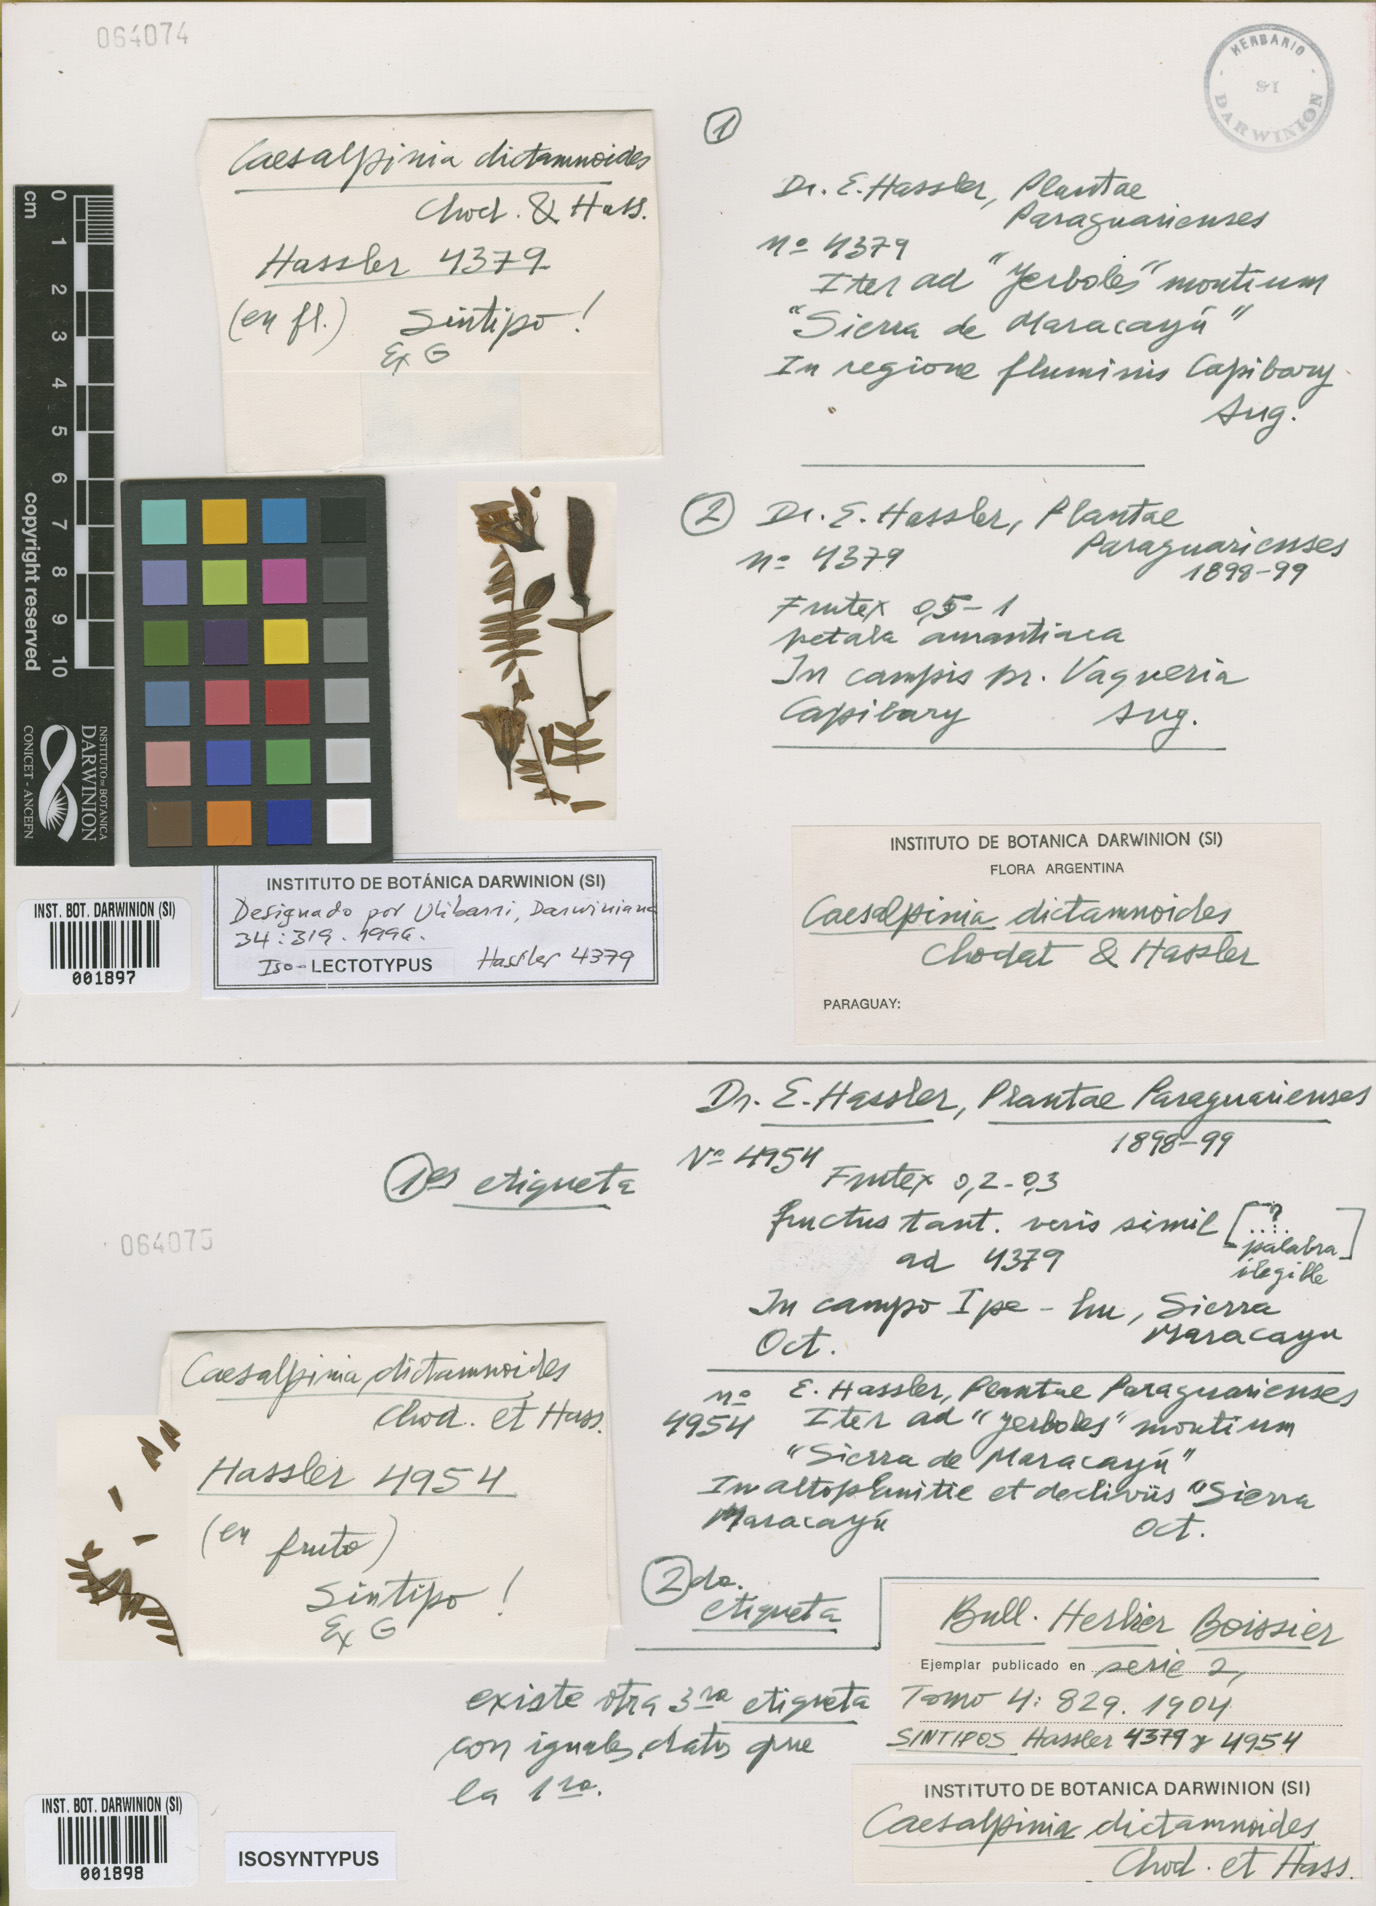 064074
HERBARIO
SI
DARWINION
Caesalpinia dictamnoides
Chod. & Hass.
Hassler 4379
(en fl.) Sintipo!
Ex G
①
Dr. E. Hassler, Plantae
Paraguarienses
nº 4379
Iter ad "Yerboles" montium
"Sierra de Maracayú"
In regione fluminis Capibary
Aug.
②
Dr. E. Hassler, Plantae
Paraguarienses
nº 4379
1898-99
Frutex 0,5-1
petala aurantiaca
In campis pr. Vaqueria
Capibary Aug.
cm
0 1 2 3 4 5 6 7 8 9 10
copyright reserved
INSTITUTO DE BOTANICA
DARWINION
CONICET - ANCEFN
INSTITUTO DE BOTANICA DARWINION (SI)
FLORA ARGENTINA
Caesalpinia dictamnoides
Chodat & Hassler
PARAGUAY:
INST. BOT. DARWINION (SI)
001897
INSTITUTO DE BOTÁNICA DARWINION (SI)
Designado por Ulibarri, Darwiniana
34:319. 1996.
Iso-LECTOTYPUS Hassler 4379
Dr. E. Hassler, Plantae Paraguarienses
1898-99
Nº 4954
Frutex 0,2-0,3
fructus tant. veris simil [..?..
palabra
ilegible]
ad 4379
In campo Ipe-hu, Sierra
Maracayu
Oct.
1es etiqueta
064075
nº
4954
E. Hassler, Plantae Paraguarienses
Iter ad "yerboles" montium
"Sierra de Maracayú"
In altoplanitie et declivüs "Sierra
Maracayú Oct.
2 da.
etiqueta
Caesalpinia dictamnoides
Chod. et Hass.
Hassler 4954
(en fruto)
Sintipo!
Ex G
existe otra 3ra etiqueta
con iguales datos que
la 1ra.
Bull. Herbier Boissier
Ejemplar publicado en serie 2,
Tomo 4: 829. 1904
SINTIPOS Hassler 4379 y 4954
INSTITUTO DE BOTANICA DARWINION (SI)
Caesalpinia dictamnoides
Chod. et Hass.
INST. BOT. DARWINION (SI)
001898
ISOSYNTYPUS